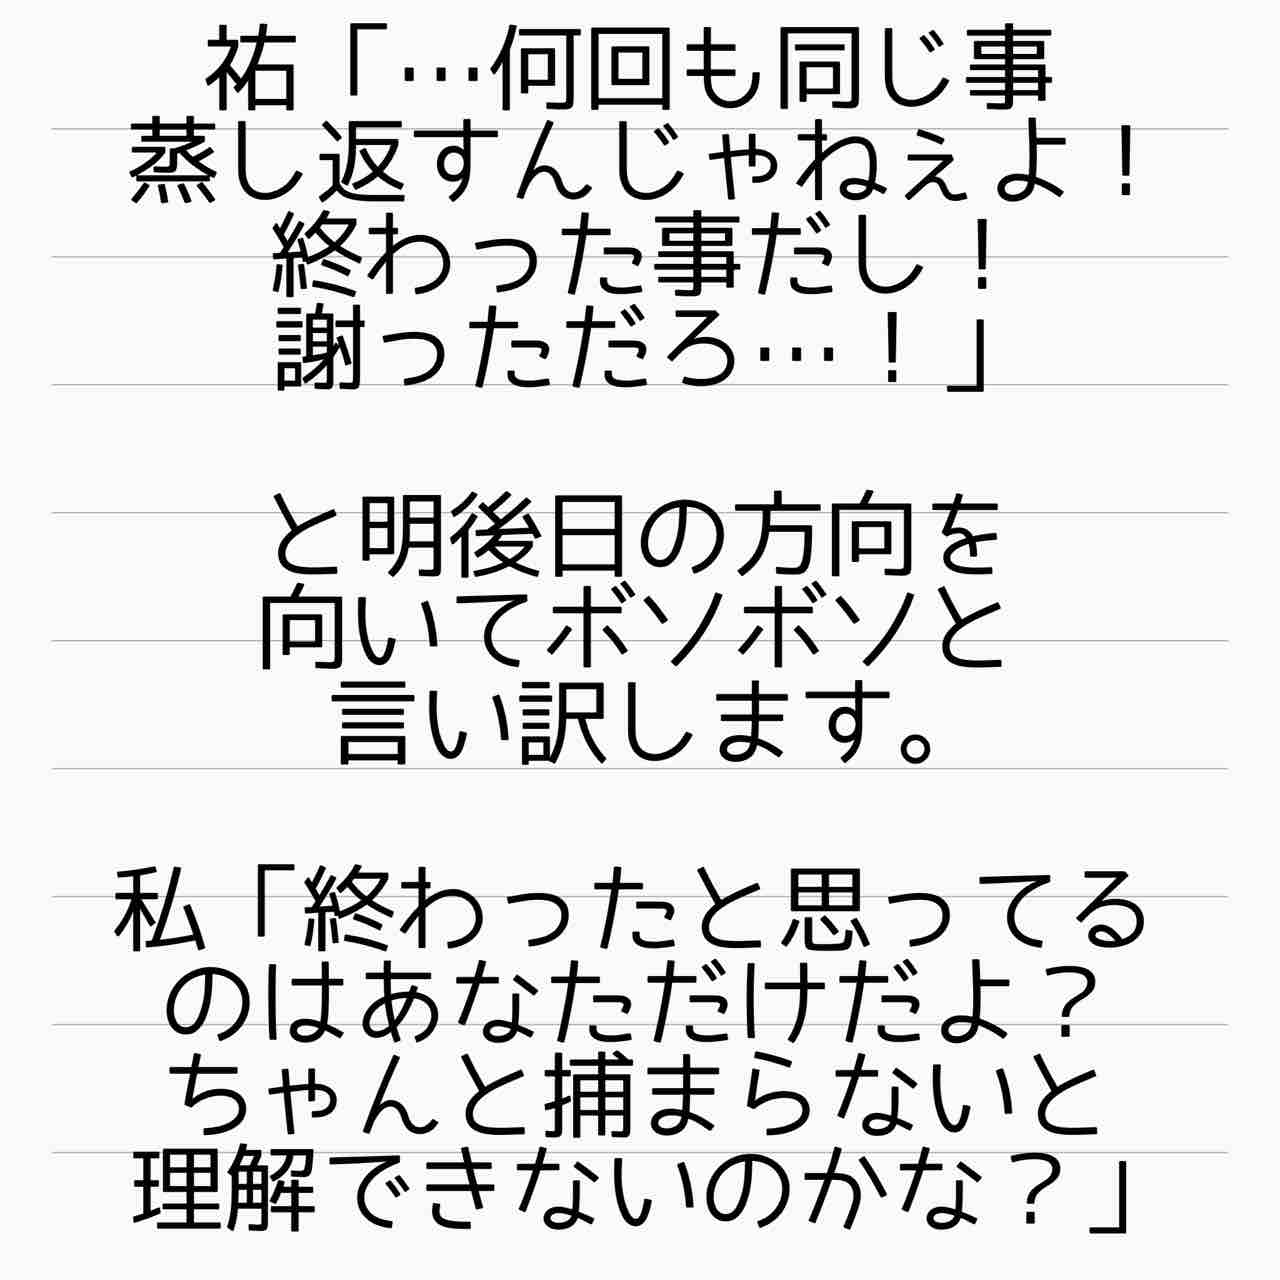 祐「…何回も同じ事
蒸し返すんじゃねぇよ！
終わった事だし！
謝っただろ…！」
と明後日の方向を
向いてボソボソと
言い訳します。
私「終わったと思ってる
のはあなただけだよ？
ちゃんと捕まらないと
理解できないのかな？」